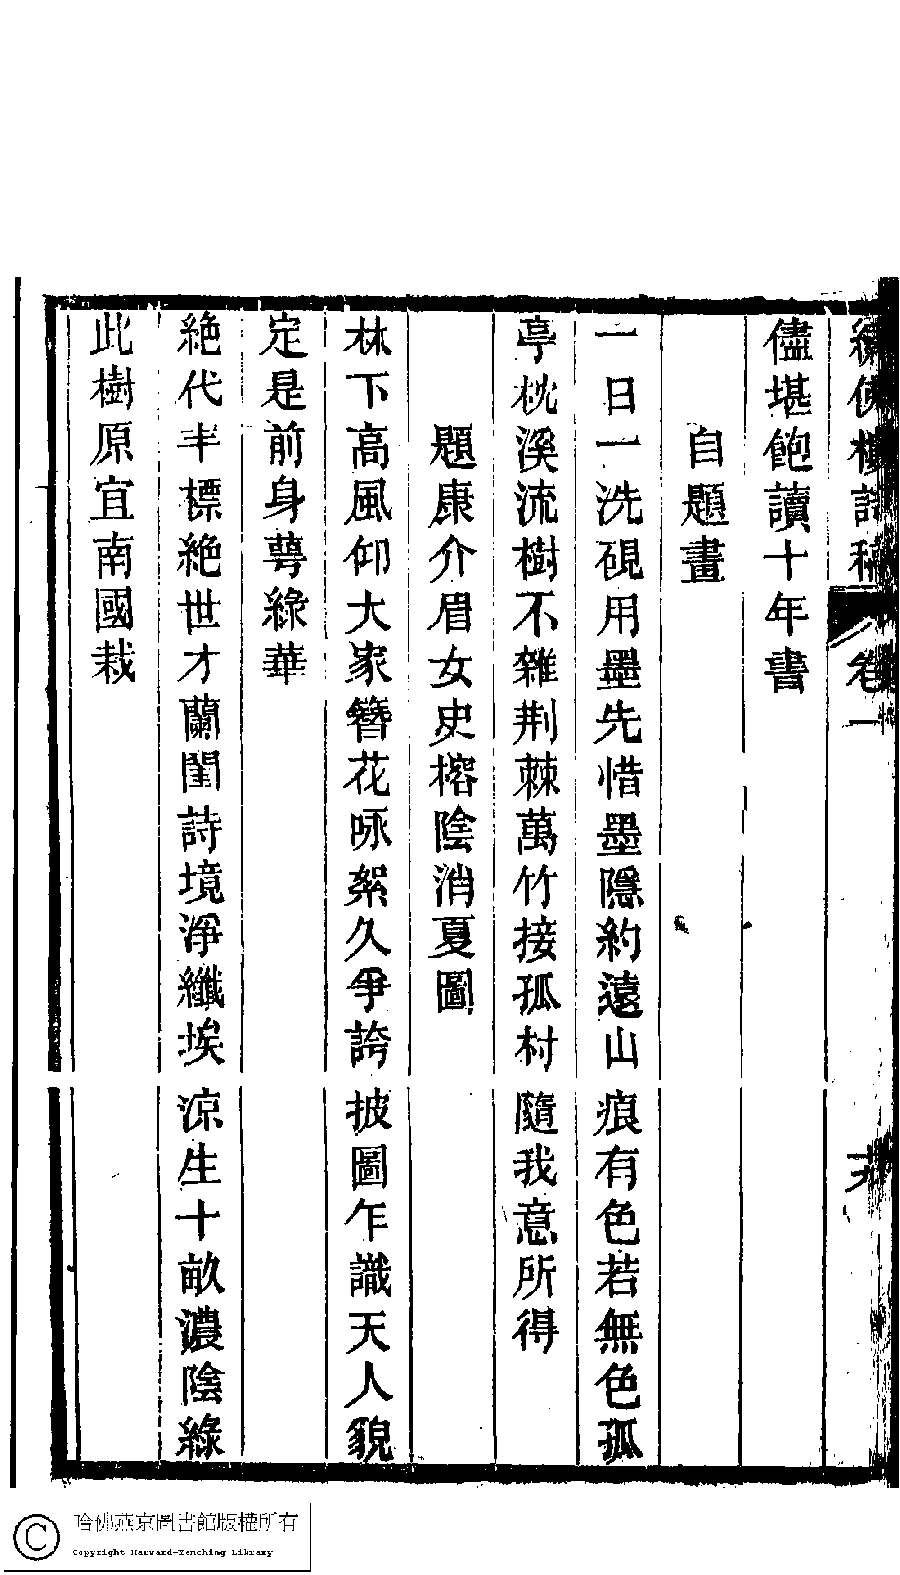 繡佛樓詩稿 卷一
儘堪飽讀十年書
自題畫
一日一洗硯用墨先惜墨隱約遠山痕有色若無色孤
亭枕溪流樹不雜荆棘萬竹接孤村隨我意所得
題康介眉女史榕陰消夏圖
林下高風仰大家簪花咏絮久爭誇披圖乍識天人貌
定是前身萼綠華
絶代丰標絶世才蘭閨詩境淨纖埃涼生十畝濃陰綠
此樹原宜南國栽
哈佛燕京圖書館版權所有
Copyright Harvard-Yenching Library